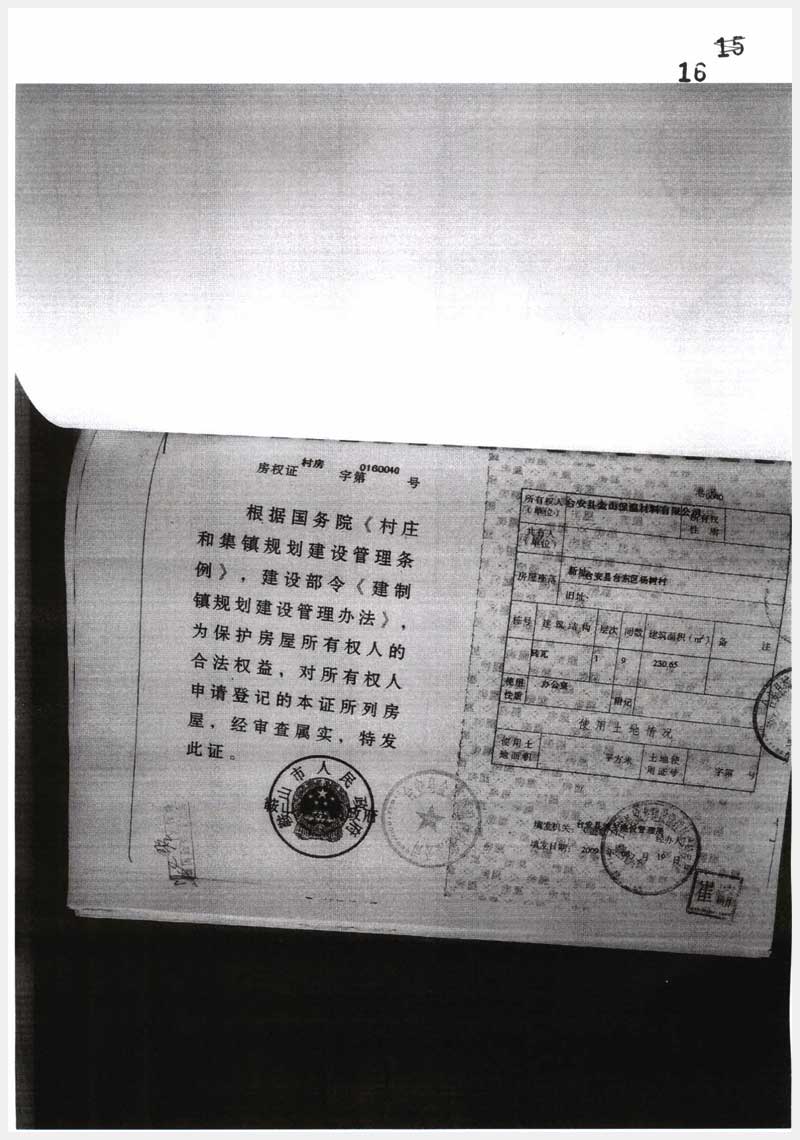 15
16
房权证 村房 字第 0160040 号
根据国务院《村庄
和集镇规划建设管理条
例》，建设部令《建制
镇规划建设管理办法》，
为保护房屋所有权人的
合法权益，对所有权人
申请登记的本证所列房
屋，经审查属实，特发
此证。
鞍山市人民政府
所有权人 台安县 保温材料有限公司 所有权
（单位） 性质
共有人
（单位）
房屋座落 新址 台安县台东区杨树村
旧址
栋号 建筑结构 层次 间数 建筑面积（m²） 备注
砖瓦 1 9 230.65
使用 办公室 附记
使用土地情况
使用土 平方米 土地使 字第 号
地面积 用证号
填发机关： 台安县 管理
填发日期： 2009 年 月 日
崔